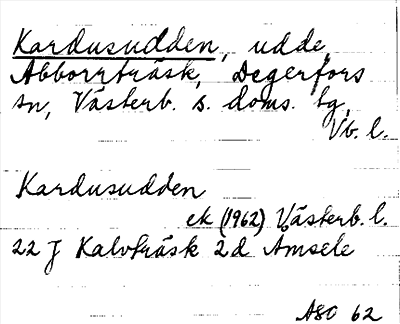 Kardusudden, udde,
Abborrträsk, Degerfors
sn, Västerb. s. doms. tg,
Vb. l.
Kardusudden
ek (1962) Västerb. l.
22 J Kalvträsk 2d Åmsele
ASO 62